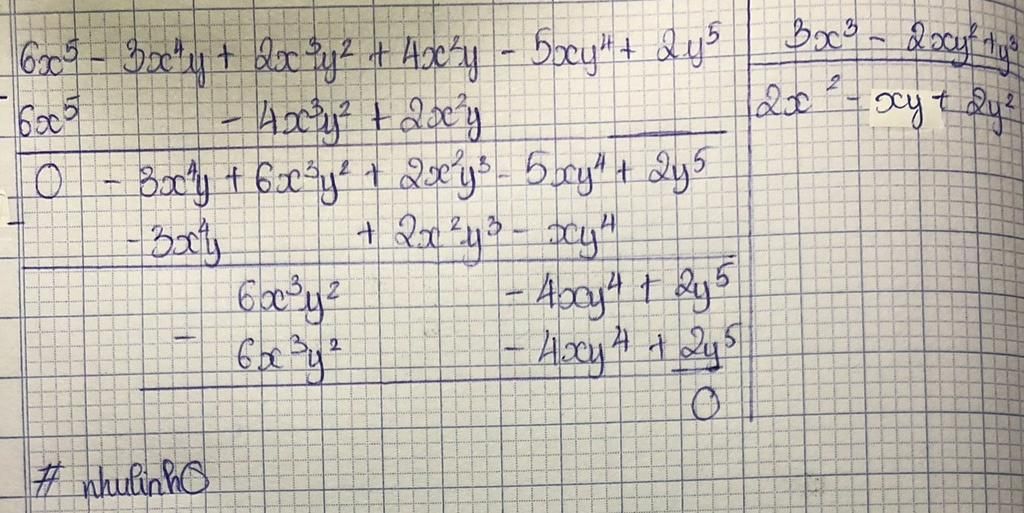 6x⁵ - 3x⁴y + 2x³y² + 4x²y - 5xy⁴ + 2y⁵ | 3x³ - 2xy² + y³
6x⁵ - 4x³y² + 2x²y | 2x² - xy + 2y²
0 - 3x⁴y + 6x³y² + 2x²y³ - 5xy⁴ + 2y⁵
- 3x⁴y + 2x²y³ - xy⁴
6x³y² - 4xy⁴ + 2y⁵
- 6x³y² - 4xy⁴ + 2y⁵
0
# nhulinhO